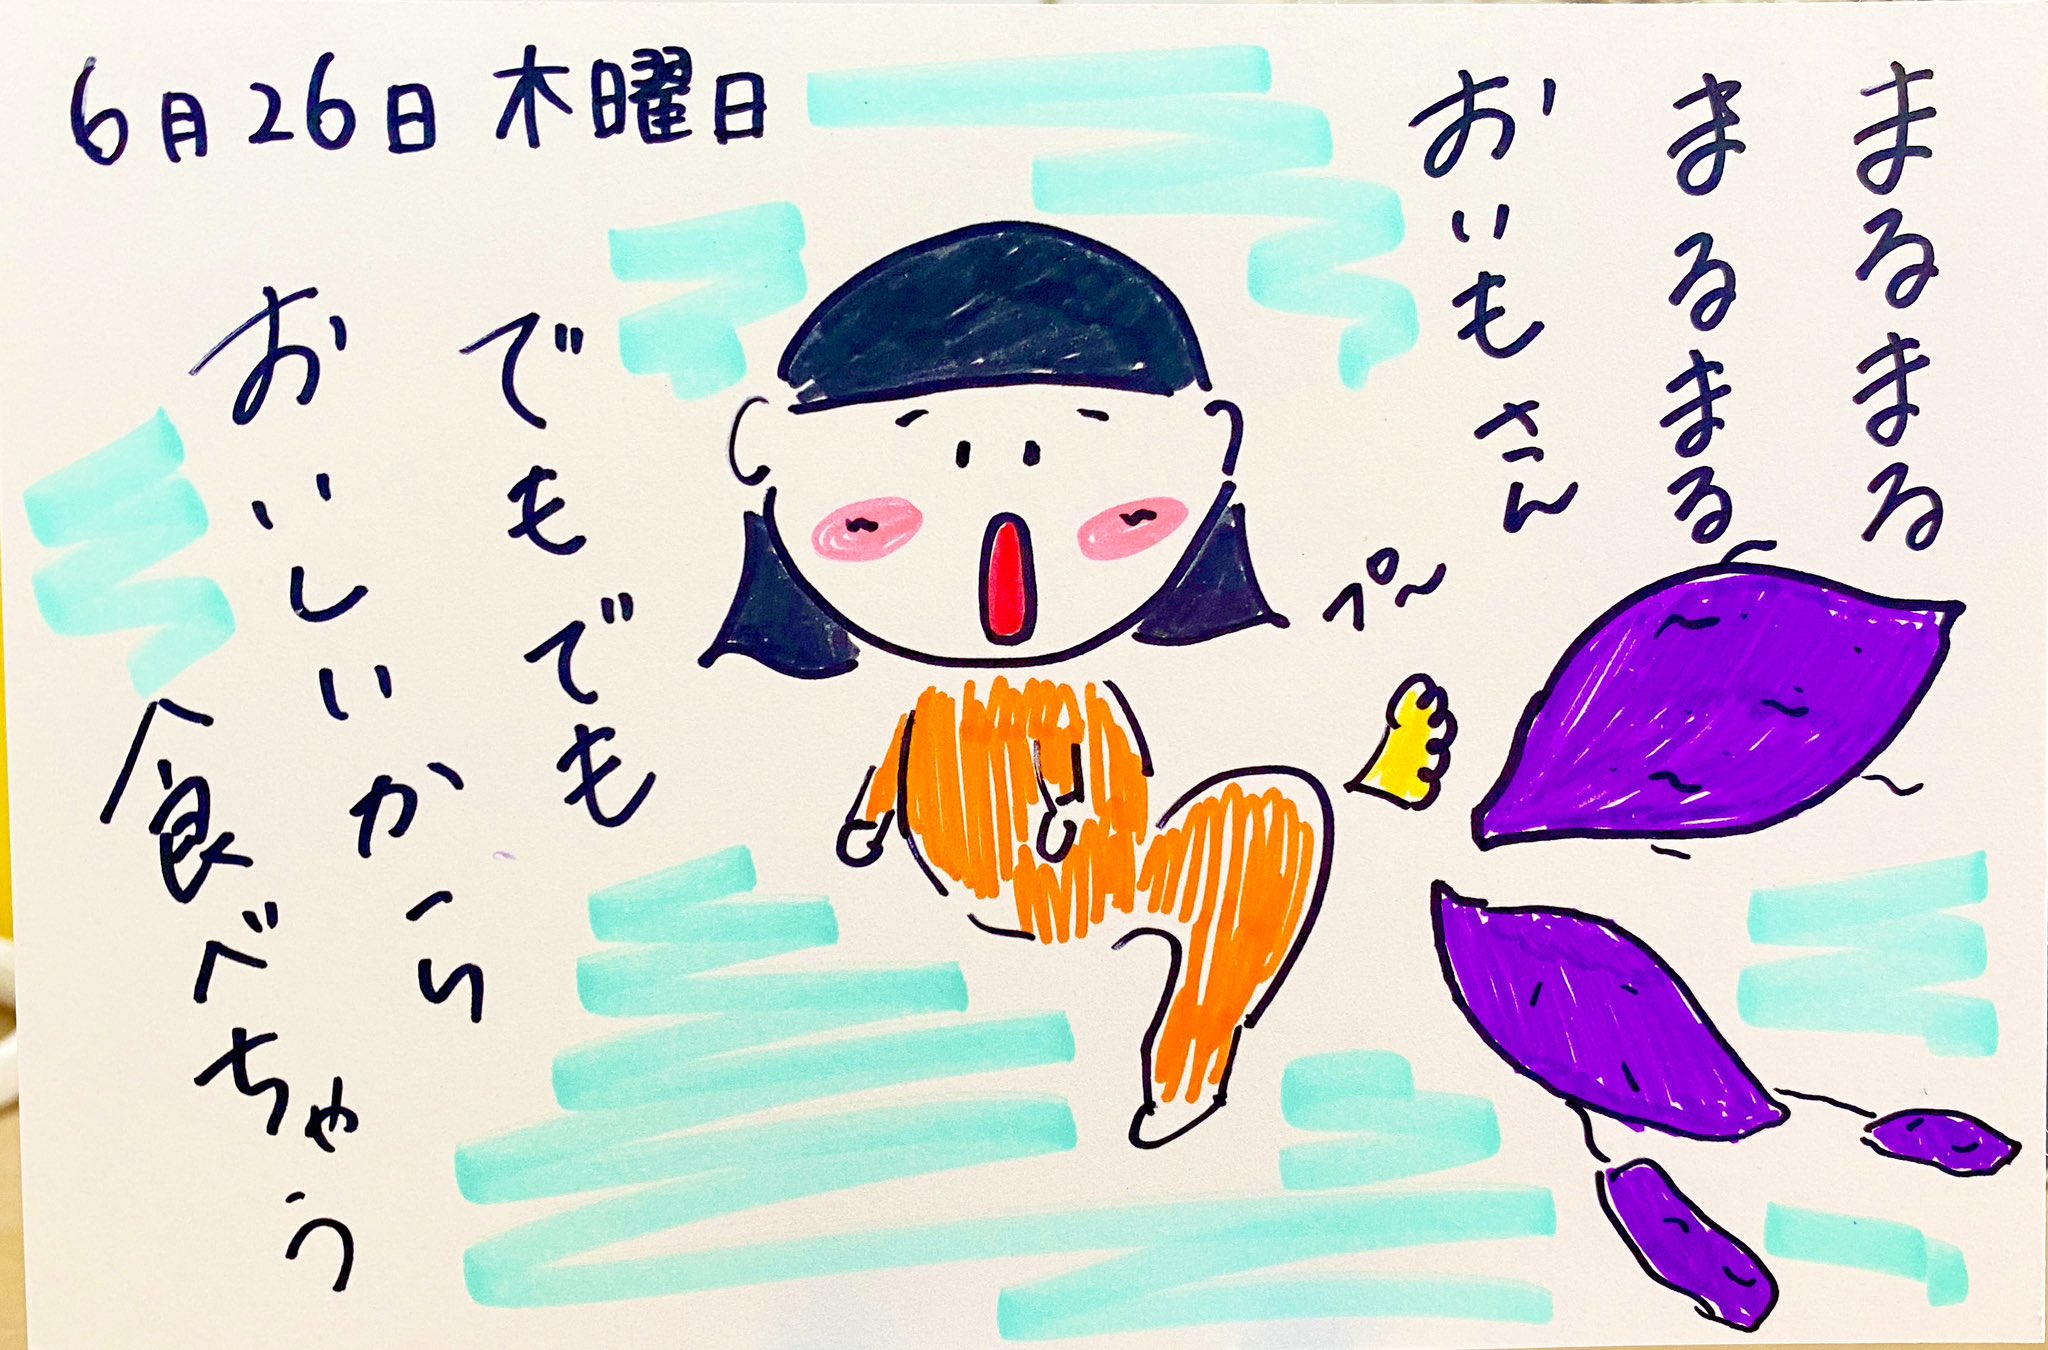 6月26日 木曜日
まるまる
まるまる
おいもさん
プ〜
でもでも
おいしいから
食べちゃう